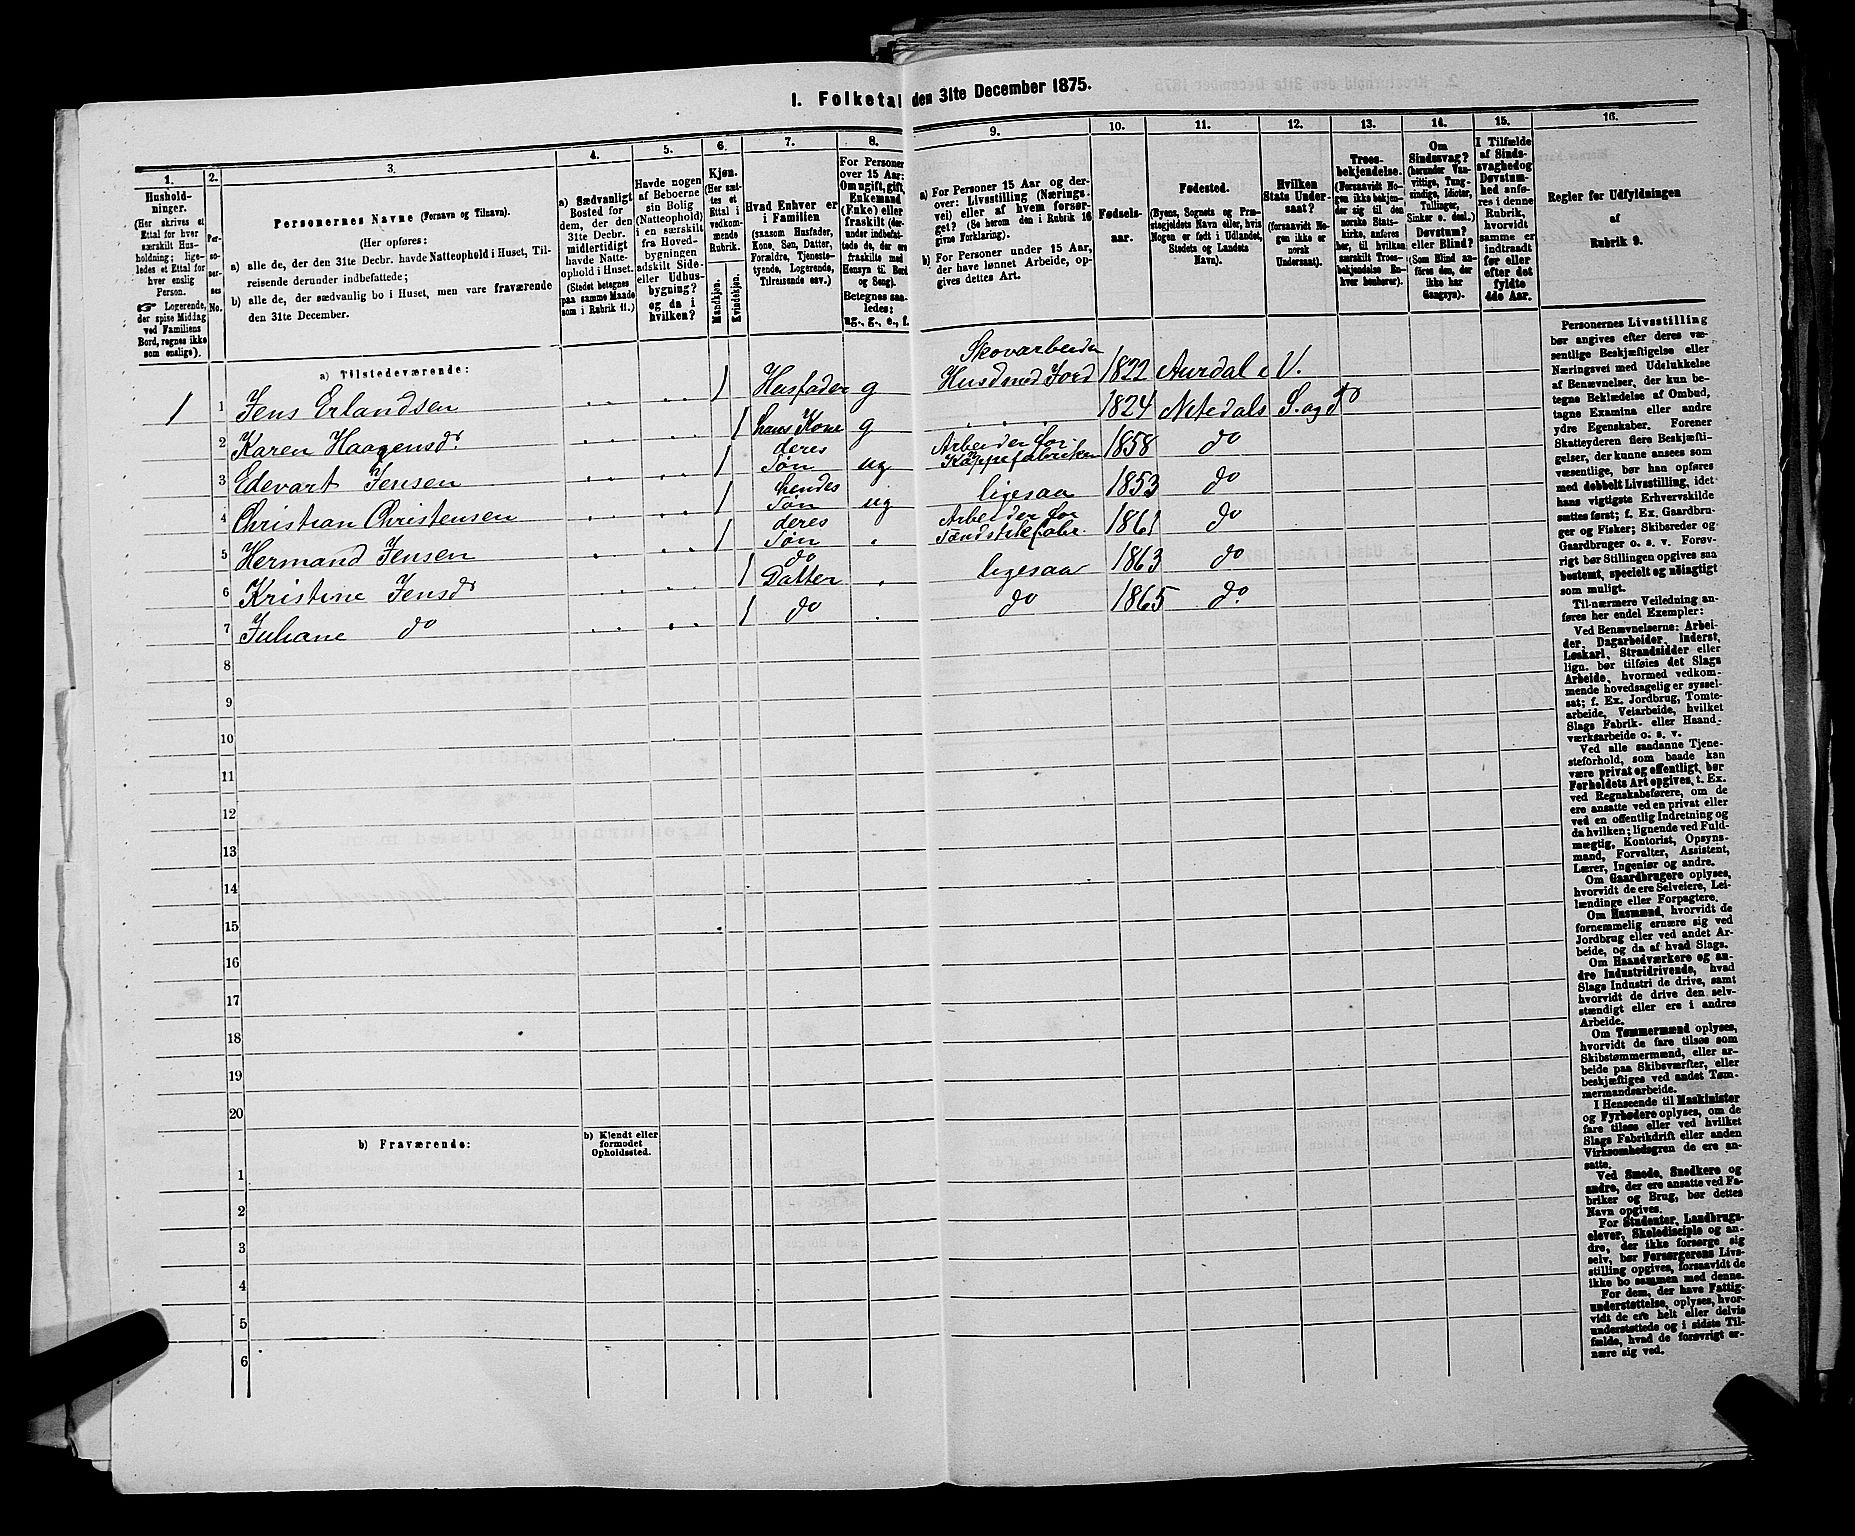 1. Folketal den 31te December 1875.
1.
2.
3.
4.
5.
6.
7.
8.
9.
10.
11.
12.
13.
14.
15.
16.
Husholdninger.
(Her skrives et
Ettal for hver
særskilt Husholdning; ligeledes
et Ettal for
hver enslig
Person.
☞ Logerende,
der spise Middag
ved Familiens
Bord, regnes ikke
som enslige).
Personernes No.
Personernes Navne (Fornavn og Tilnavn).
(Her opføres:
a) alle de, der den 31te Decbr. havde Natteophold i Huset, Tilreisende derunder indbefattede;
b) alle de, der sædvanlig bo i Huset, men vare fraværende
den 31te December.
a) Sædvanligt
Bosted for
dem, der den
31te Decbr.
midlertidigt
havde Natteophold i Huset.
(Stedet betegnes
paa samme Maade
som i Rubrik 11.)
Havde nogen
af Beboerne
sin Bolig
(Natteophold)
i en særskilt
fra Hovedbygningen
adskilt Side-
eller Udhusbygning?
og da i
hvilken?
Kjøn.
(Her sættes et
Ettal i
vedkommende
Rubrik.
Mandkjøn.
Kvindekjøn.
Hvad Enhver er
i Familien
(saasom Husfader,
Kone, Søn, Datter,
Forældre, Tjenestetyende, Logerende,
Tilreisende osv.)
For Personer
over 15 Aar:
Om ugift, gift,
Enkemand
(Enke) eller
fraskilt (derunder indbefattede de, der ere
fraskilte med
Hensyn til Bord
og Seng).
Betegnes saaledes:
ug., g., e., f.
a) For Personer 15 Aar og derover: Livsstilling (Næringsvei) eller af hvem forsørget? (Se herom den i Rubrik 16
givne Forklaring).
b) For Personer under 15 Aar,
der have lønnet Arbeide, opgives dettes Art.
Fødselsaar.
Fødested.
(Byens, Sognets og Præstegjeldets Navn eller, hvis
Nogen er født i Udlandet,
Stedets og Landets
Navn).
Hvilken
Stats Undersaat?
(forsaavidt Nogen ikke er
norsk
Undersaat).
Troesbekjendelse.
(Forsaavidt Nogen ikke bekjender sig til den
norske Statskirke, anføres
her, til hvilken
særskilt Troesbekjendelse Enhver henhører).
Om
Sindssvag?
(herunder Vanvittige, Tungsindige, Idioter,
Tullinger,
Sinker o. desl.)
Døvstum?
eller Blind?
(Som Blind anføres den, der
ikke har
Gangsyn).
I Tilfælde
af Sindssvaghed og
Døvstumhed anføres i denne
Rubrik,
hvorvidt
samme er
indtraadt
før eller
efter det
fyldte
4de Aar.
Regler for Udfyldningen
af
Rubrik 9.
a) Tilstedeværende:
1 1 Jens Erlandsen 1 Husfader g Skovarbeider Husd med Jord 1822 Aurdal i V.
2 Karen Haagensd. 1 hans Kone g 1824 Nitedals S. og do
3 Edevart Jensen 1 deres Søn ug Arbeider for Kappefabriken 1858 do
4 Christian Christensen 1 hendes Søn ug ligesaa 1853 do
5 Hermand Jensen 1 deres Søn Arbeider for Tændstikfabr 1861 do
6 Kristine Jensd 1 do Datter ligesaa 1863 do
7 Juliane do 1 do do 1865 do.
8
9
10
11
12
13
14
15
16
17
18
19
20
b) Fraværende:
b) Kjendt eller
formodet
Opholdssted.
1
2
3
4
5
6
Personernes Livsstilling
bør angives efter deres væsentlige Beskjæftigelse eller
Næringsvei med Udelukkelse
af Benævnelser, der kun betegne Beklædelse af Ombud,
tagne Examina eller andre
ydre Egenskaber. Forener
Skatteyderen flere Beskjæftigelser, der kunne ansees som
væsentlige, bør han opføres
med dobbelt Livsstilling, idet
hans vigtigste Erhvervskilde
sættes først; f. Ex. Gaardbruger og Fisker; Skibsreder og
Gaardbruger o. s. v. Forøvrigt bør Stillingen opgives saa
bestemt, specielt og nøiagtigt
som muligt.
Til nærmere Veiledning anføres her endel Exempler:
Ved Benævnelserne: Arbeider, Dagarbeider, Inderst,
Løskarl, Strandsidder eller
lign. bør tilføies det Slags
Arbeide, hvormed vedkommende hovedsagelig er sysselsat; f. Ex. Jordbrug, Tomtearbeide, Veiarbeide, hvilket
Slags Fabrik- eller Haandværksarbeide o. s. v.
Ved alle saadanne Tjenesteforhold, som baade kan
være privat og offentligt, bør
Forholdets Art opgives, t. Ex.
ved Regnskabsførere, om de
ere ansatte ved en privat eller
ved en offentlig Indretning og
da hvilken; lignende ved Fuldmægtig, Kontorist, Opsynsmand, Forvalter, Assistent,
Lærer, Ingeniør og andre.
Om Gaardbrugere oplyses,
hvorvidt de ere Selveiere, Leilændinge eller Forpagtere.
Om Husmænd, hvorvidt de
fornemmelig ernære sig ved
Jordbrug eller ved andet Arbeide, og da af hvad Slags.
Om Haandværkere og andre Industridrivende, hvad
Slags Industri de drive, samt
hvorvidt de drive den selvstændigt eller ere i andres
Arbeide.
Om Tømmermænd oplyses,
hvorvidt de fare tilsøs som
Skibstømmermænd, eller arbeide paa Skibsværfter, eller
beskjæftiges ved andet Tømmermandsarbeide.
I Henseende til Maskinister
og Fyrbødere oplyses, om de
fare tilsøs eller ved hvilket
Slags Fabrikdrift eller anden
Virksomhedsgren de ere ansatte.
Ved Smede, Snedkere og
andre, der ere ansatte ved Fabriker og Brug, bør dettes
Navn opgives.
For Studenter, Landbrugselever, Skoledisciple og andre, der ikke forsørge sig
selv, bør Forsørgerens Livsstilling opgives, forsaavidt de
ikke bo sammen med denne.
For dem, der have Fattigunderstøttelse, oplyses, hvorvidt de ere helt eller delvis
understøttede og i sidste Tilfælde, hvad de forøvrigt ernære sig ved.